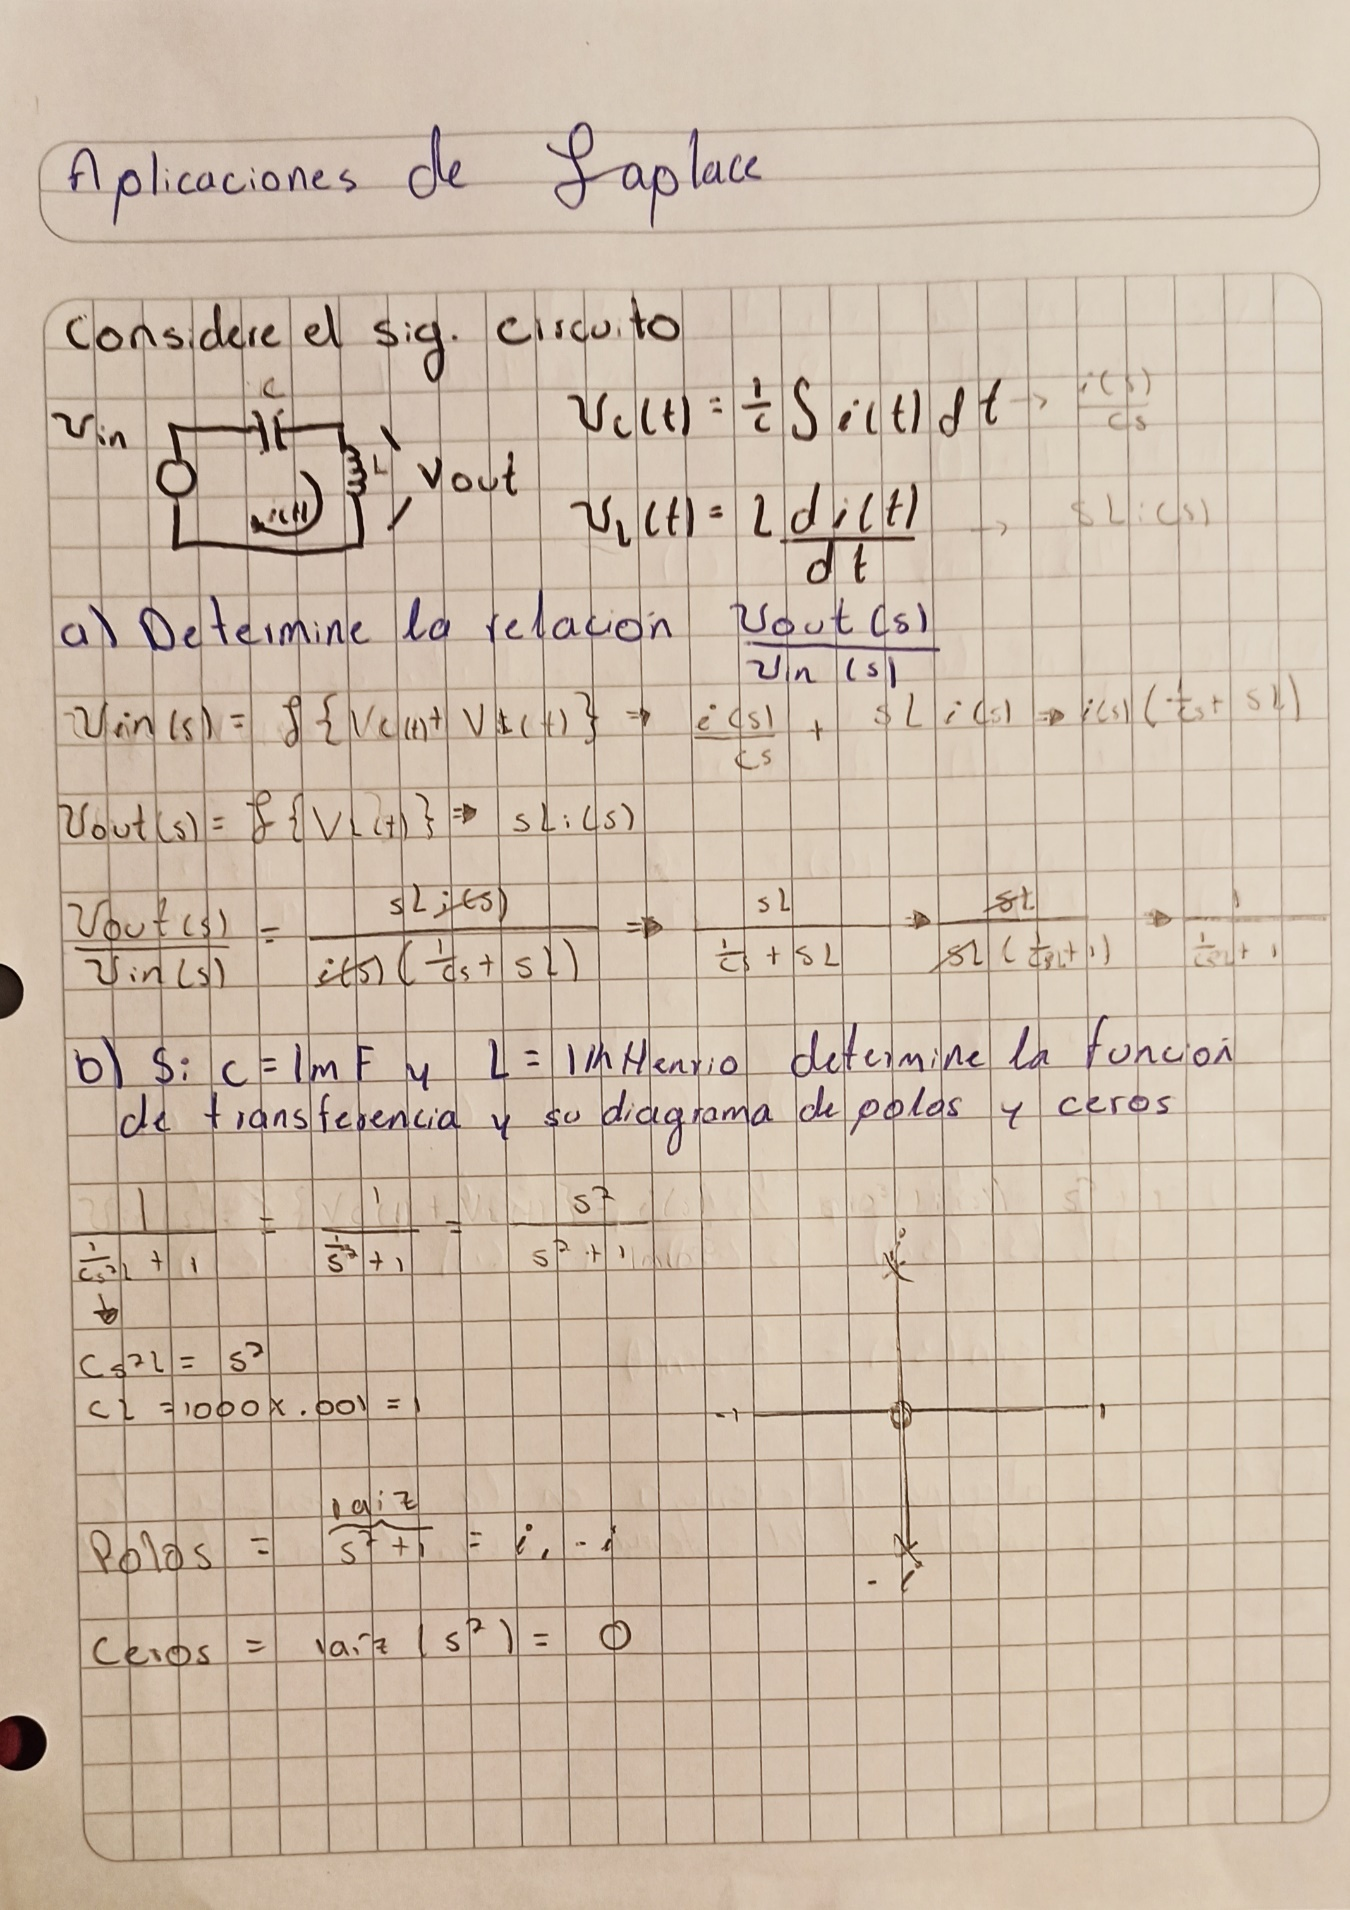 Aplicaciones de Laplace
Considere el sig. circuito
Vin C L i(t) Vout
Vc(t) = 1/c ∫ i(t) dt → i(s)/cs
VL(t) = L di(t)/dt → sLi(s)
a) Determine la relación Vout(s)/Vin(s)
Vin(s) = ℒ{Vc(t)+ VL(t)} ⇒ i(s)/cs + sL i(s) ⇒ i(s)(1/cs + sL)
Vout(s) = ℒ{VL(t)} ⇒ sLi(s)
Vout(s)/Vin(s) = sLi(s)/i(s)(1/cs + sL) ⇒ sL/(1/cs + sL) ⇒ sL/sL(1/cs²L + 1) ⇒ 1/(1/cs²L + 1)
b) Si C = 1mF y L = 1mHenrio determine la función
de transferencia y su diagrama de polos y ceros
1/(1/cs²L + 1) = 1/(1/s² + 1) = s²/(s² + 1)
↓
Cs²L = s²
CL = 1000 x .001 = 1
i
-1 1
-i
Polos = raiz s² + 1 = i, -i
Ceros = raiz (s²) = 0